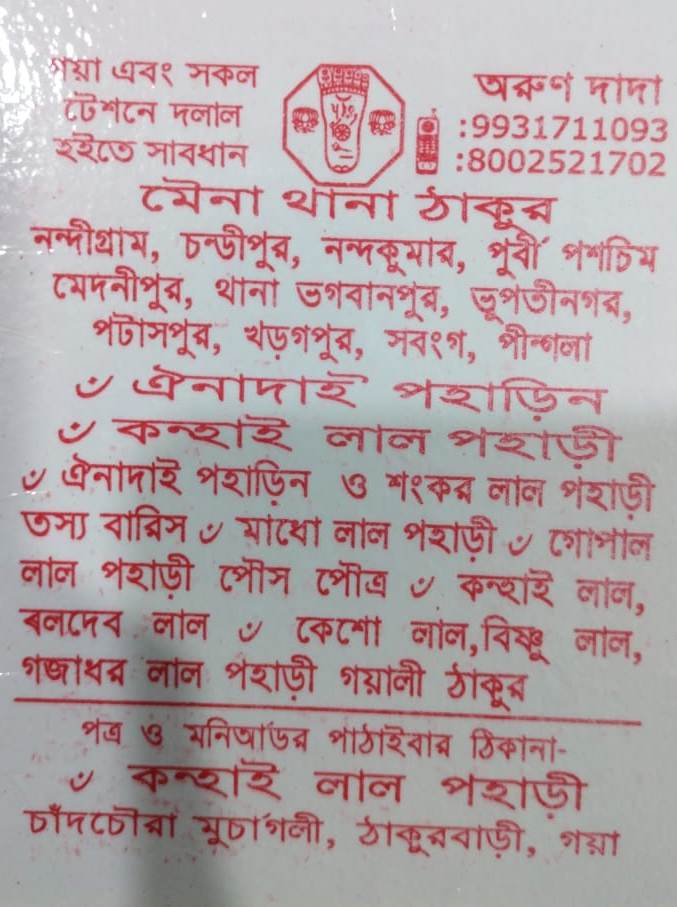 গয়া এবং সকল
টেশনে দলাল
হইতে সাবধান
অরুণ দাদা
:9931711093
:8002521702
মৈনা থানা ঠাকুর
নন্দীগ্রাম, চন্ডীপুর, নন্দকুমার, পুর্বী পশ্চিম
মেদনীপুর, থানা ভগবানপুর, ভূপতীনগর,
পটাসপুর, খড়গপুর, সবংগ, পীন্গলা
ঐনাদাই পহাড়িন
কন্হাই লাল পহাড়ী
ঐনাদাই পহাড়িন ও শংকর লাল পহাড়ী
তস্য বারিস ৺ মাধো লাল পহাড়ী ৺ গোপাল
লাল পহাড়ী পৌস পৌত্র ৺ কন্হাই লাল,
বলদেব লাল ৺ কেশো লাল,বিষ্ণু লাল,
গজাধর লাল পহাড়ী গয়ালী ঠাকুর
পত্র ও মনিঅর্ডর পাঠাইবার ঠিকানা-
৺ কন্হাই লাল পহাড়ী
চাঁদচৌরা মুর্চাগলী, ঠাকুরবাড়ী, গয়া